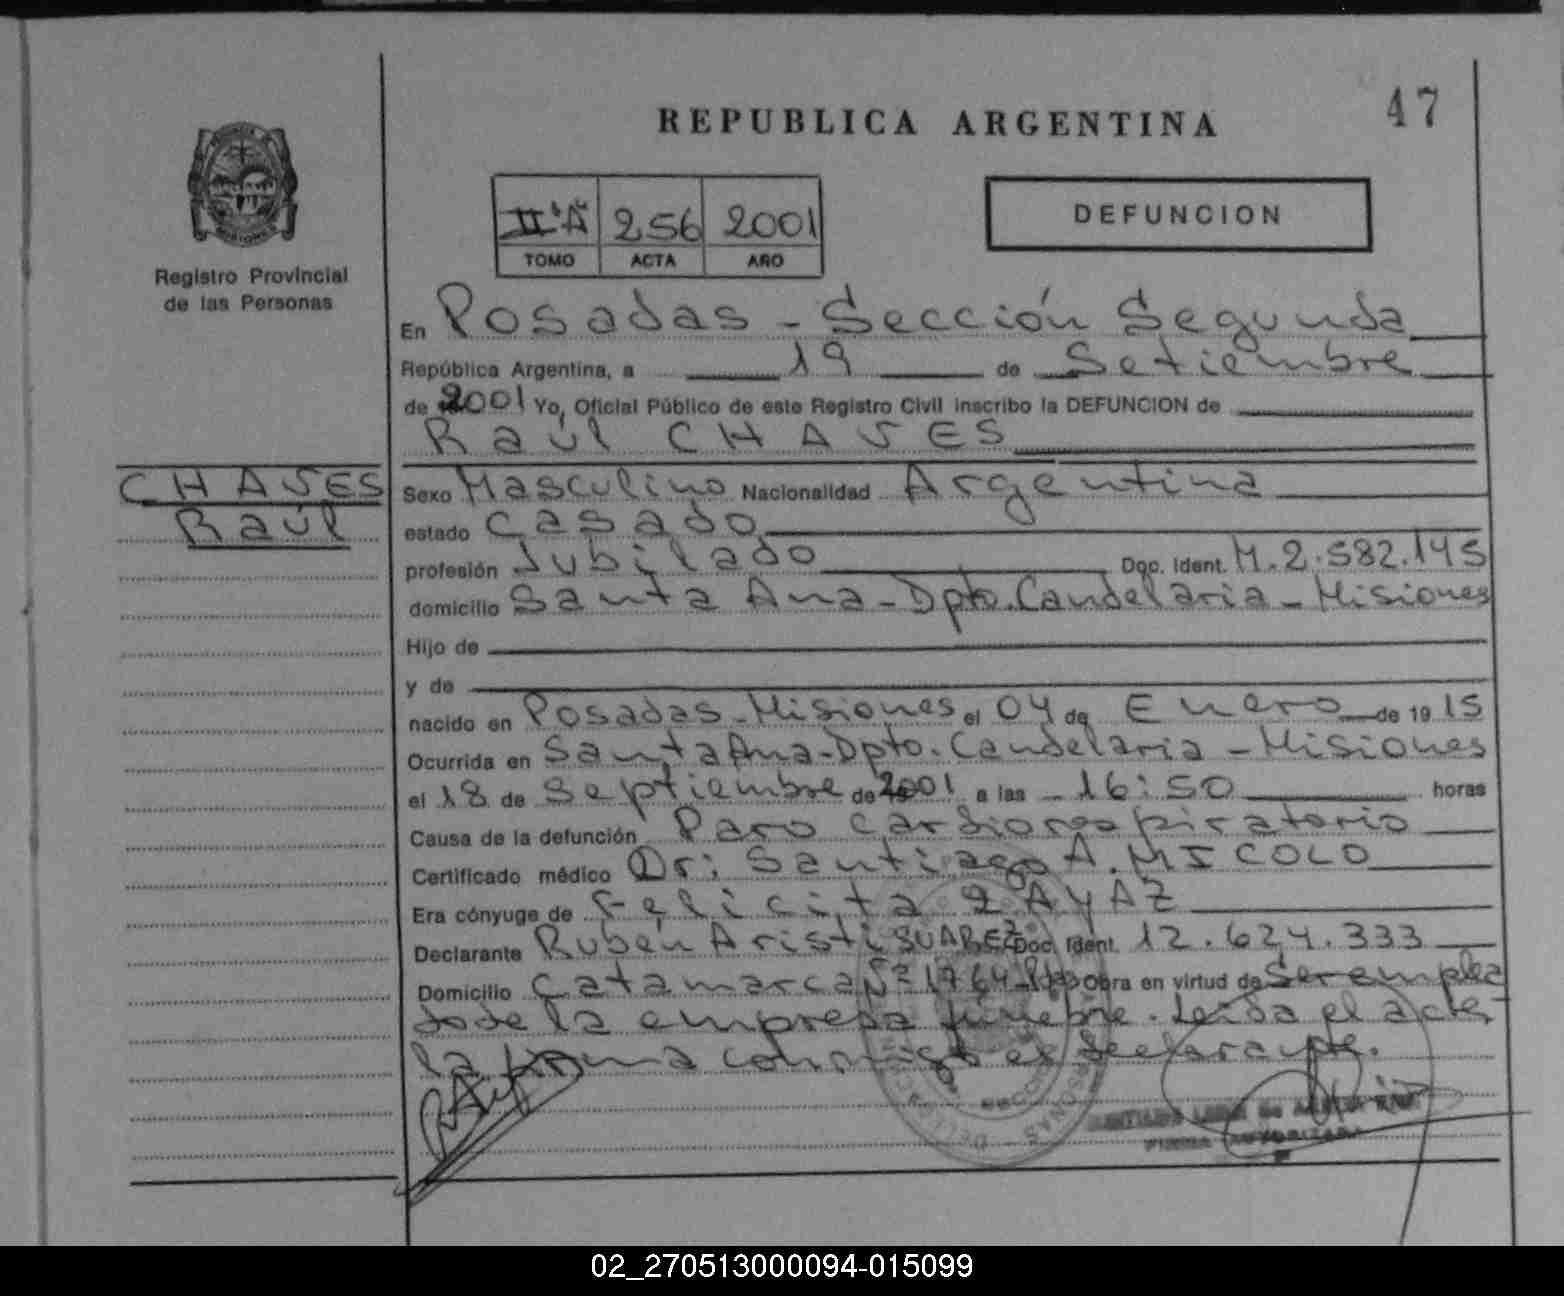 47
REPUBLICA ARGENTINA
MISIONES
Registro Provincial
de las Personas
II "A" 256 2001
TOMO ACTA AÑO
DEFUNCION
En Posadas - Sección Segunda
República Argentina, a 19 de Setiembre
de 2001 Yo, Oficial Público de este Registro Civil inscribo la DEFUNCION de
Raúl CHAVES
CHAVES
Raúl
Sexo Masculino Nacionalidad Argentina
estado casado
profesión Jubilado Doc. Ident. M.2.582.145
domicilio Santa Ana - Dpto. Candelaria - Misiones
Hijo de
y de
nacido en Posadas - Misiones el 04 de Enero de 1915
Ocurrida en Santa Ana - Dpto. Candelaria - Misiones
el 18 de Septiembre de 2001 a las 16:50 horas
Causa de la defunción Paro cardiorespiratorio
Certificado médico Dr: Santiago A. MICOLO
Era cónyuge de Felicita AYAZ
Declarante Rubén Aristi SUAREZ Doc. Ident. 12.624.333
Domicilio Catamarca Nº 1764 - Pdas Obra en virtud de Ser emplea
do de la empresa fúnebre. Leída el acta,
la firma conmigo el declarante.
FIRMA AUTORIZADA
02_270513000094-015099